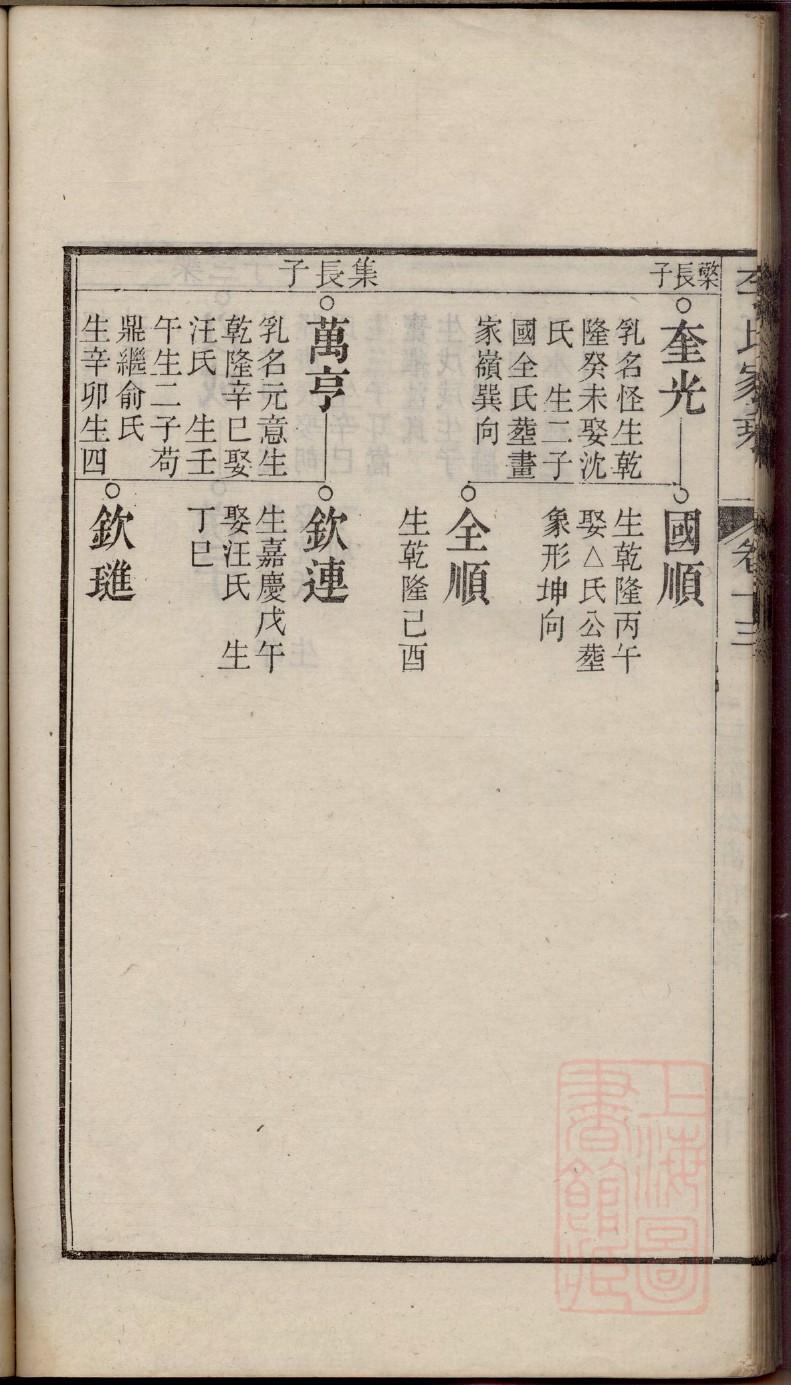 卷十三
檠長子
奎光
乳名怪生乾
隆癸未娶沈
氏　生二子
國全氏塟畫
家嶺巽向
國順
生乾隆丙午
娶△氏公塟
象形坤向
全順
生乾隆己酉
集長子
萬亨
乳名元意生
乾隆辛巳娶
汪氏　生壬
午生二子苟
鼎繼俞氏
生辛卯生四
欽連
生嘉慶戊午
娶汪氏　生
丁巳
欽璡
上海圖
書館藏